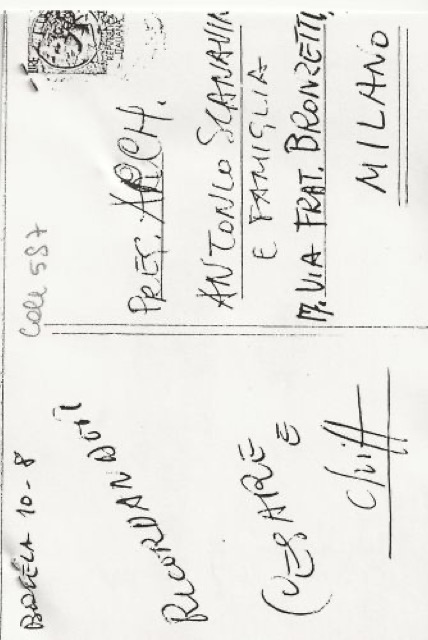 Cole 587
10-8
RICORDANDOTI
CESARE
E
Cliff
PREG. ARCH.
ANTONIO SCANAVIN
E FAMIGLIA
17. VIA FRAT. BRONZETTI
MILANO